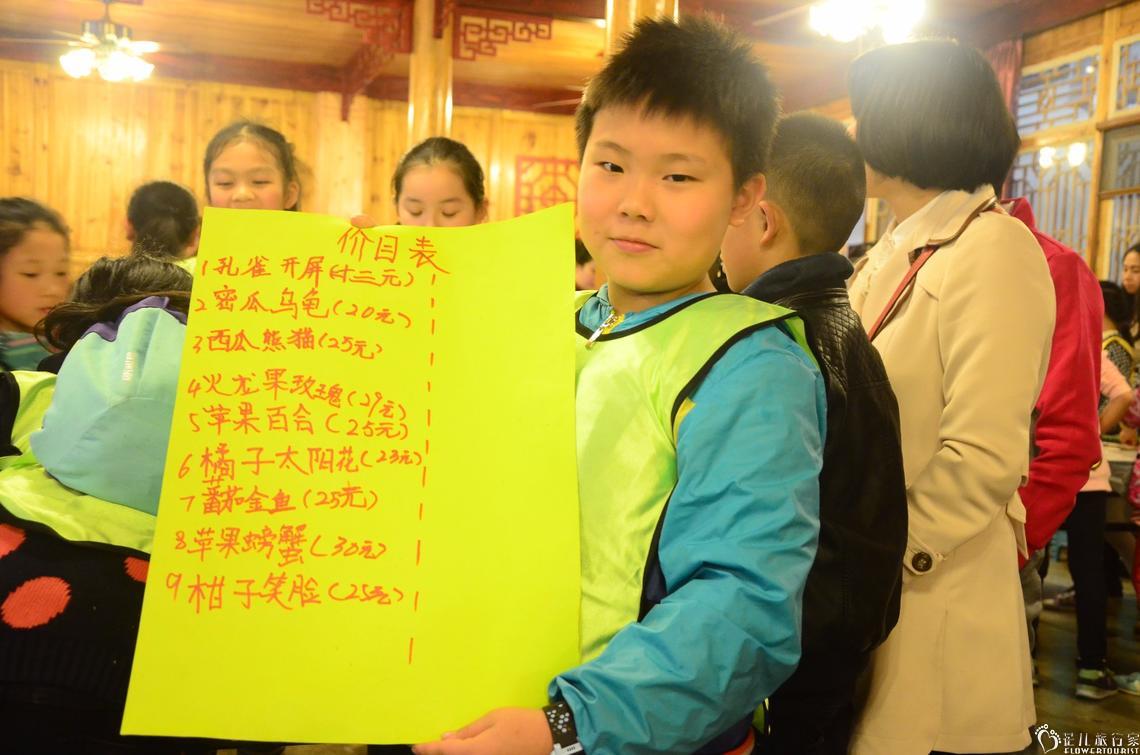 价目表
1孔雀开屏(廿三元)
2密瓜乌龟(20元)
3西瓜熊猫(25元)
4火龙果玫瑰(29元)
5苹果百合(25元)
6橘子太阳花(23元)
7蕃茄金鱼(25元)
8苹果螃蟹(30元)
9柑子笑脸(25元)
昆儿旅行家
FLOWERTOURIST